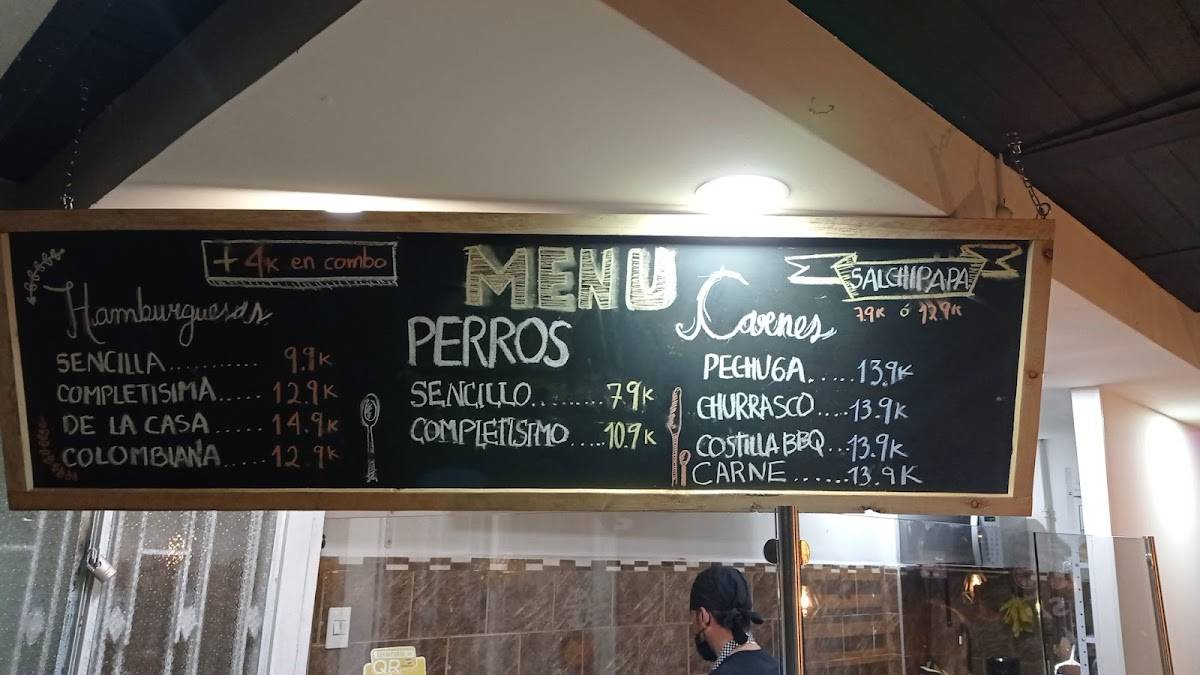 +4K en combo
MENU
Hamburguesas
SENCILLA........... 9.9K
COMPLETISIMA..... 12.9K
DE LA CASA ..... 14.9K
COLOMBIANA..... 12.9K
PERROS
SENCILLO.........7.9K
COMPLETISIMO.....10.9K
SALCHIPAPA
7.9K ó 12.9K
Carnes
PECHUGA......13.9K
CHURRASCO....13.9K
COSTILLA BBQ...13.9K
CARNE.......13.9K
QR